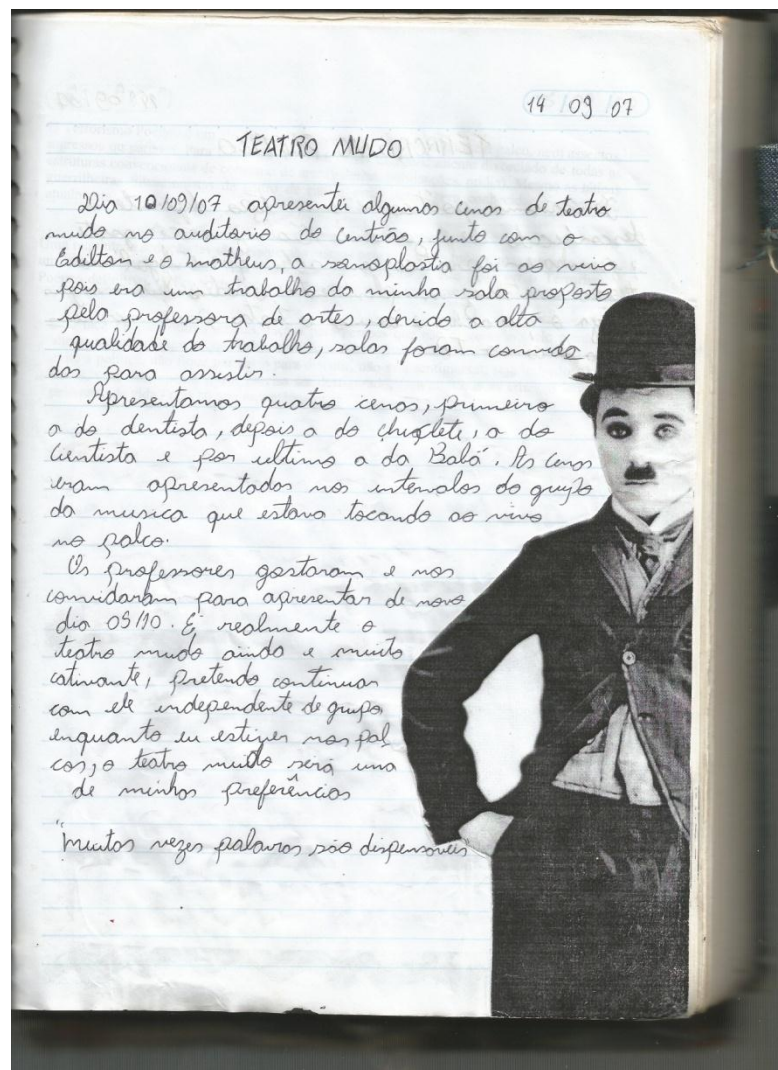 14/09/07
TEATRO MUDO
Dia 10/09/07 apresentei algumas cenas de teatro
mudo no auditorio do centrão, junto com o
Edilton e o Matheus, a sonoplastia foi ao vivo
pois era um trabalho da minha sala proposto
pela professora de artes, devido a alta
qualidade do trabalho, salas foram convida
das para assistir.
Apresentamos quatro cenas, primeiro
a do dentista, depois a do chiclete, a do
cientista e por ultimo a da Balá. As cenas
eram apresentadas nos intervalos do grupo
da musica que estava tocando ao vivo
no palco.
Os professores gostaram e nos
convidaram para apresentar de novo
dia 05/10. É realmente o
teatro mudo ainda e muito
cativante, pretendo continuar
com ele independente de grupo,
enquanto eu estiver nos pal
cos, o teatro mudo será uma
de minhas preferências
"Muitas vezes palavras são dispensaveis